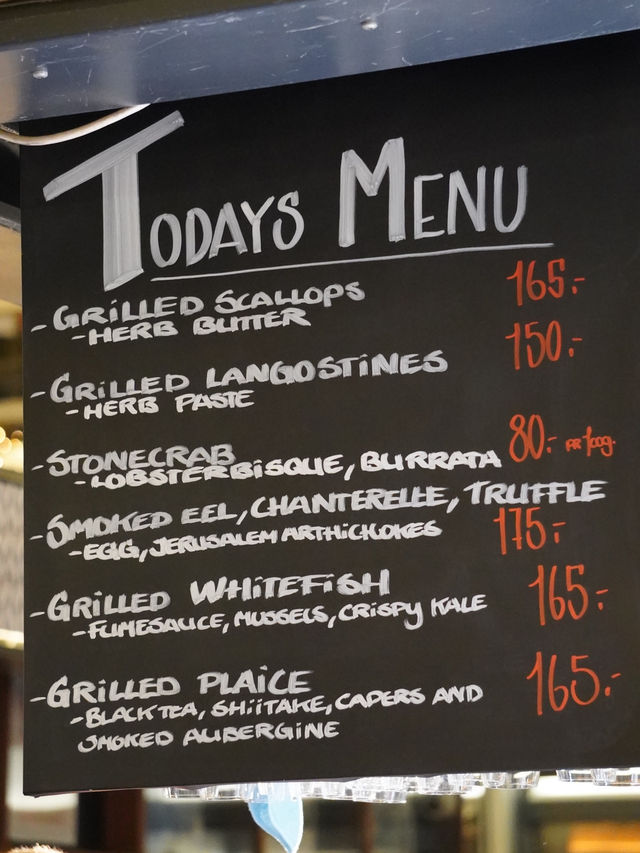 TODAYS MENU
- GRILLED SCALLOPS 165.-
- HERB BUTTER
- GRILLED LANGOSTINES 150.-
- HERB PASTE
- STONECRAB 80.- PR 100g.
- LOBSTERBISQUE, BURRATA
- SMOKED EEL, CHANTERELLE, TRUFFLE
- EGG, JERUSALEM ARTHICHOKES 175.-
- GRILLED WHITEFISH 165.-
- FUMESAUCE, MUSSELS, CRISPY KALE
- GRILLED PLAICE 165.-
- BLACK TEA, SHIITAKE, CAPERS AND
SMOKED AUBERGINE